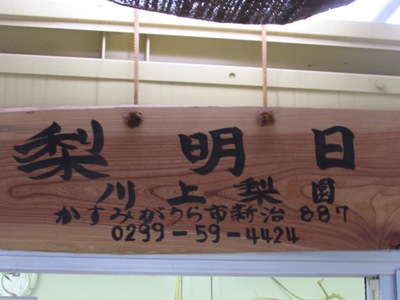 梨明日
川上梨園
かすみがうら市新治 887
0299-59-4424